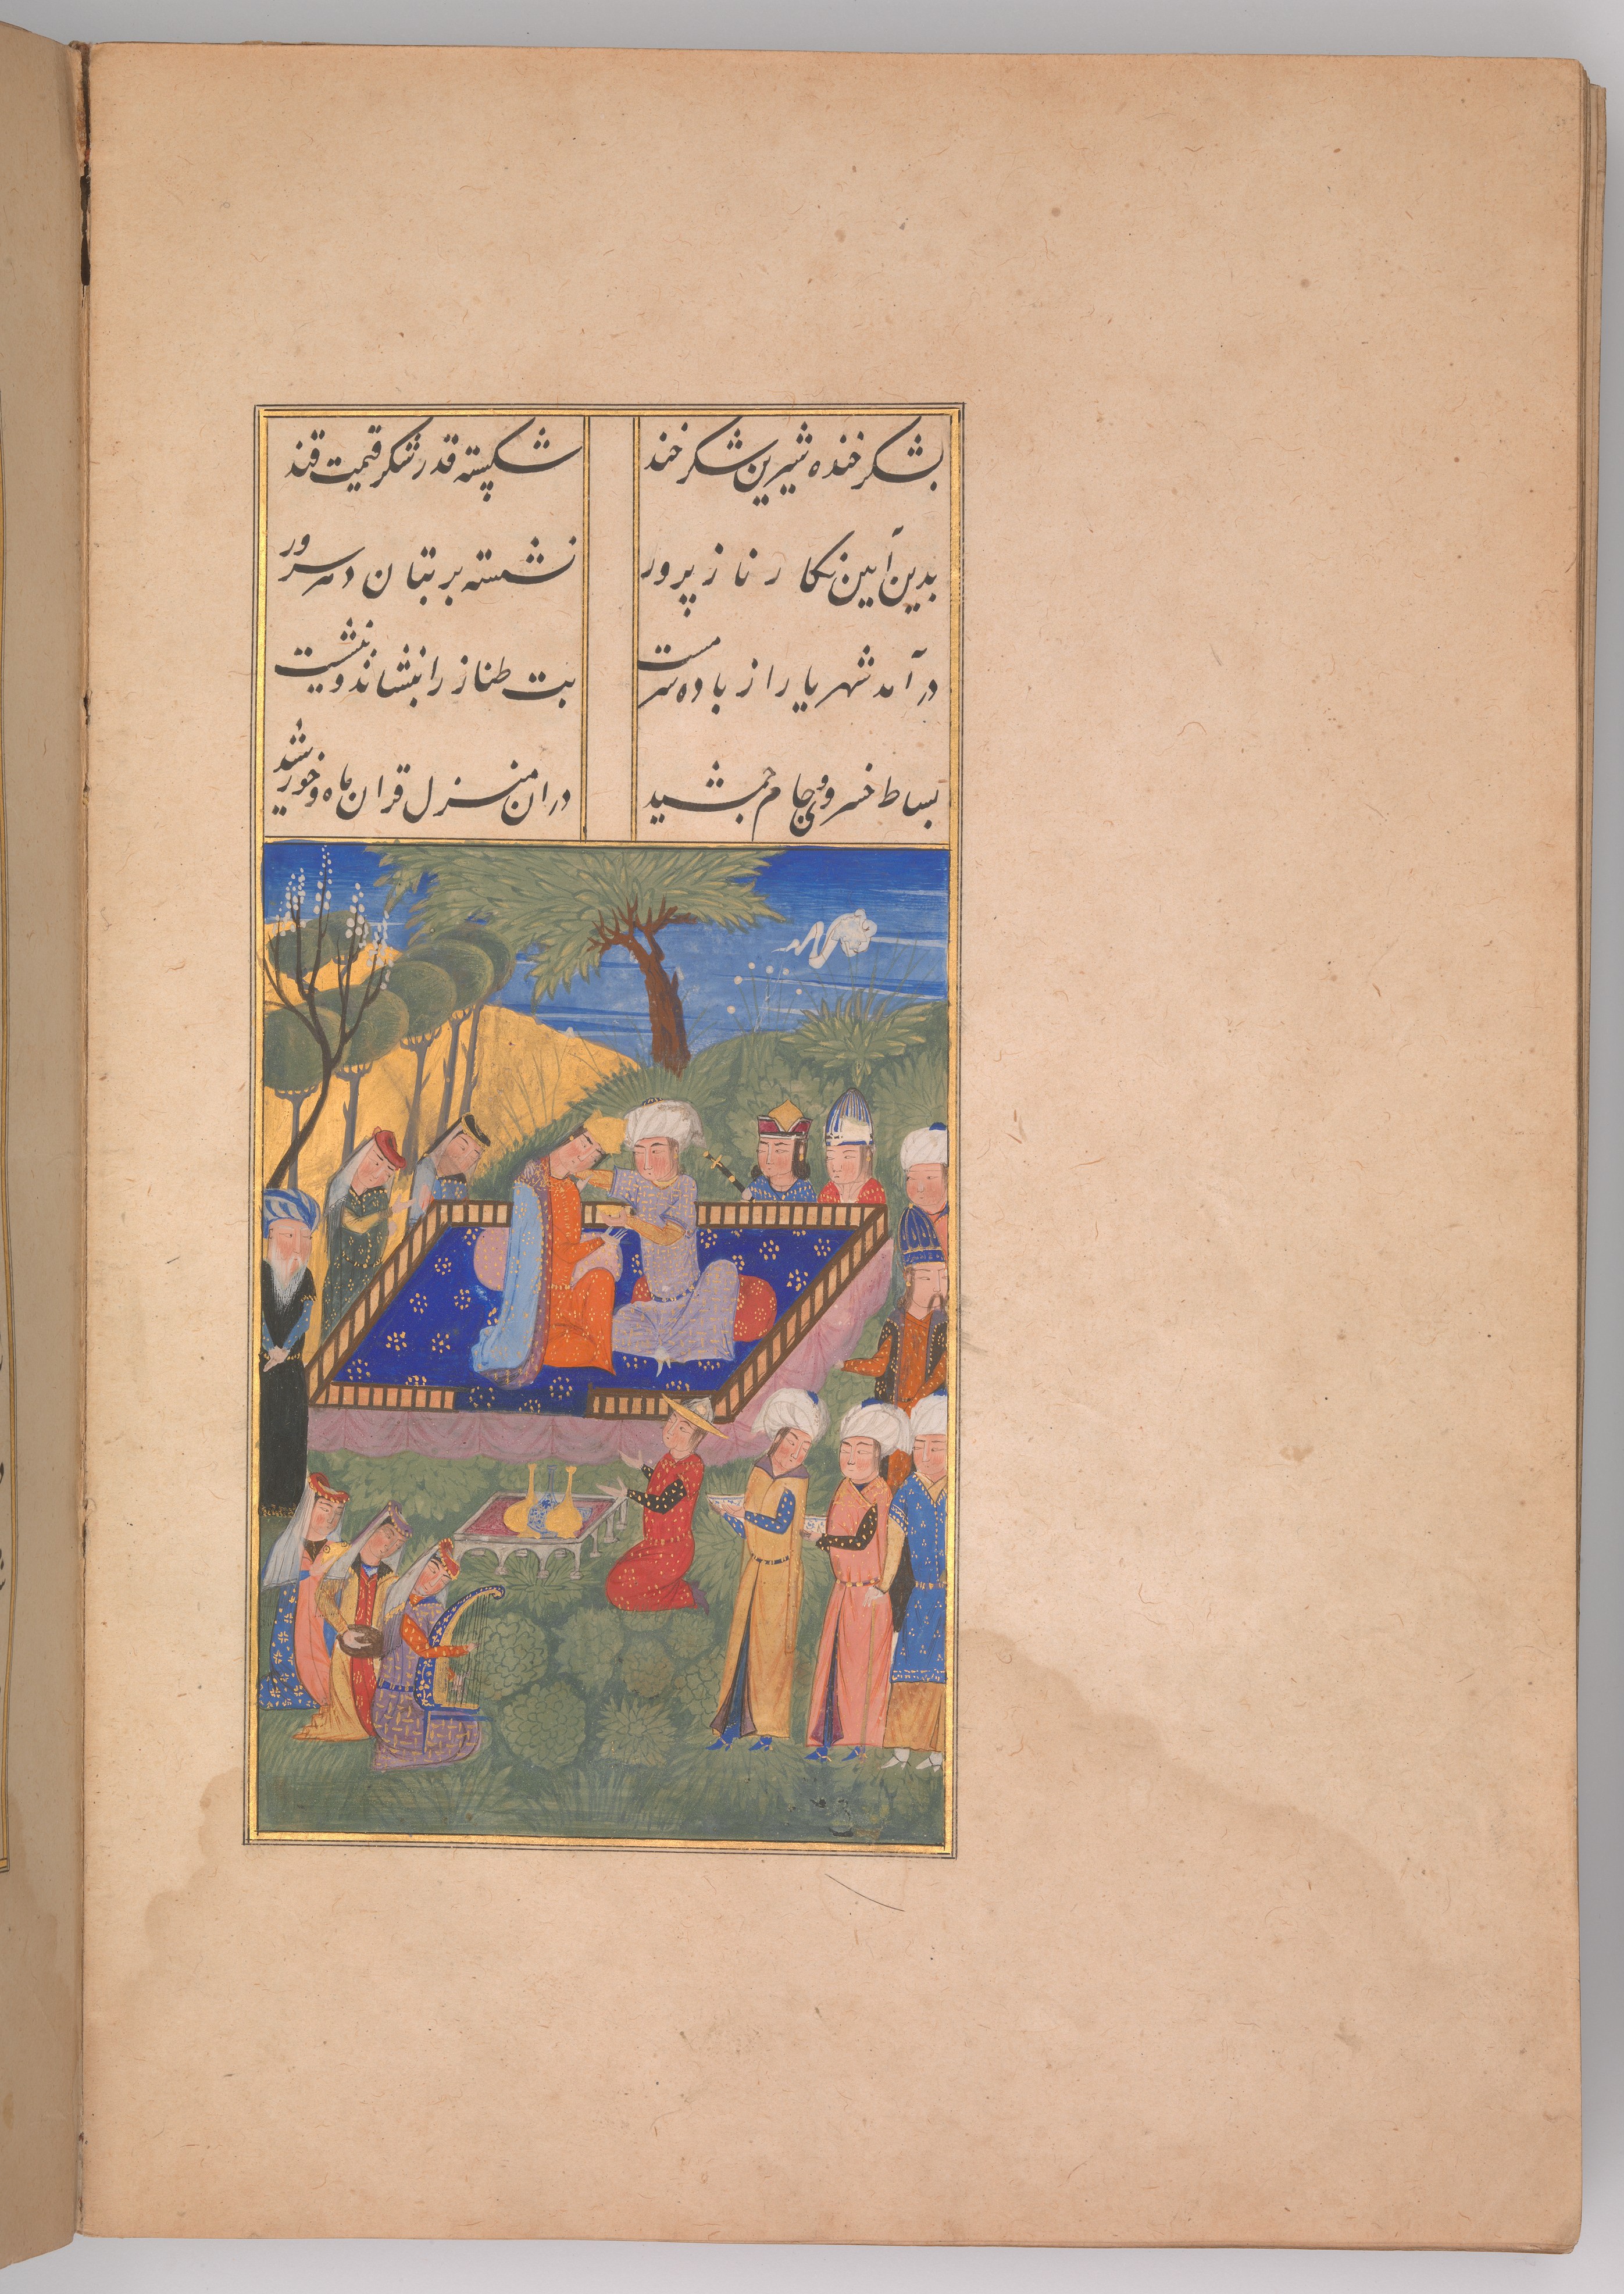 بشکر خنده شیرین شکر خند شکسته قدر شکر قیمت قند
بدین آیین نکار ناز پرور نشسته بر بتان دهر سرور
در آمد شهریار از باده سرمست بت طناز را بنشاند و بنشست
بساط خسروی و جام جمشید در ان منزل قران ماه و خورشید